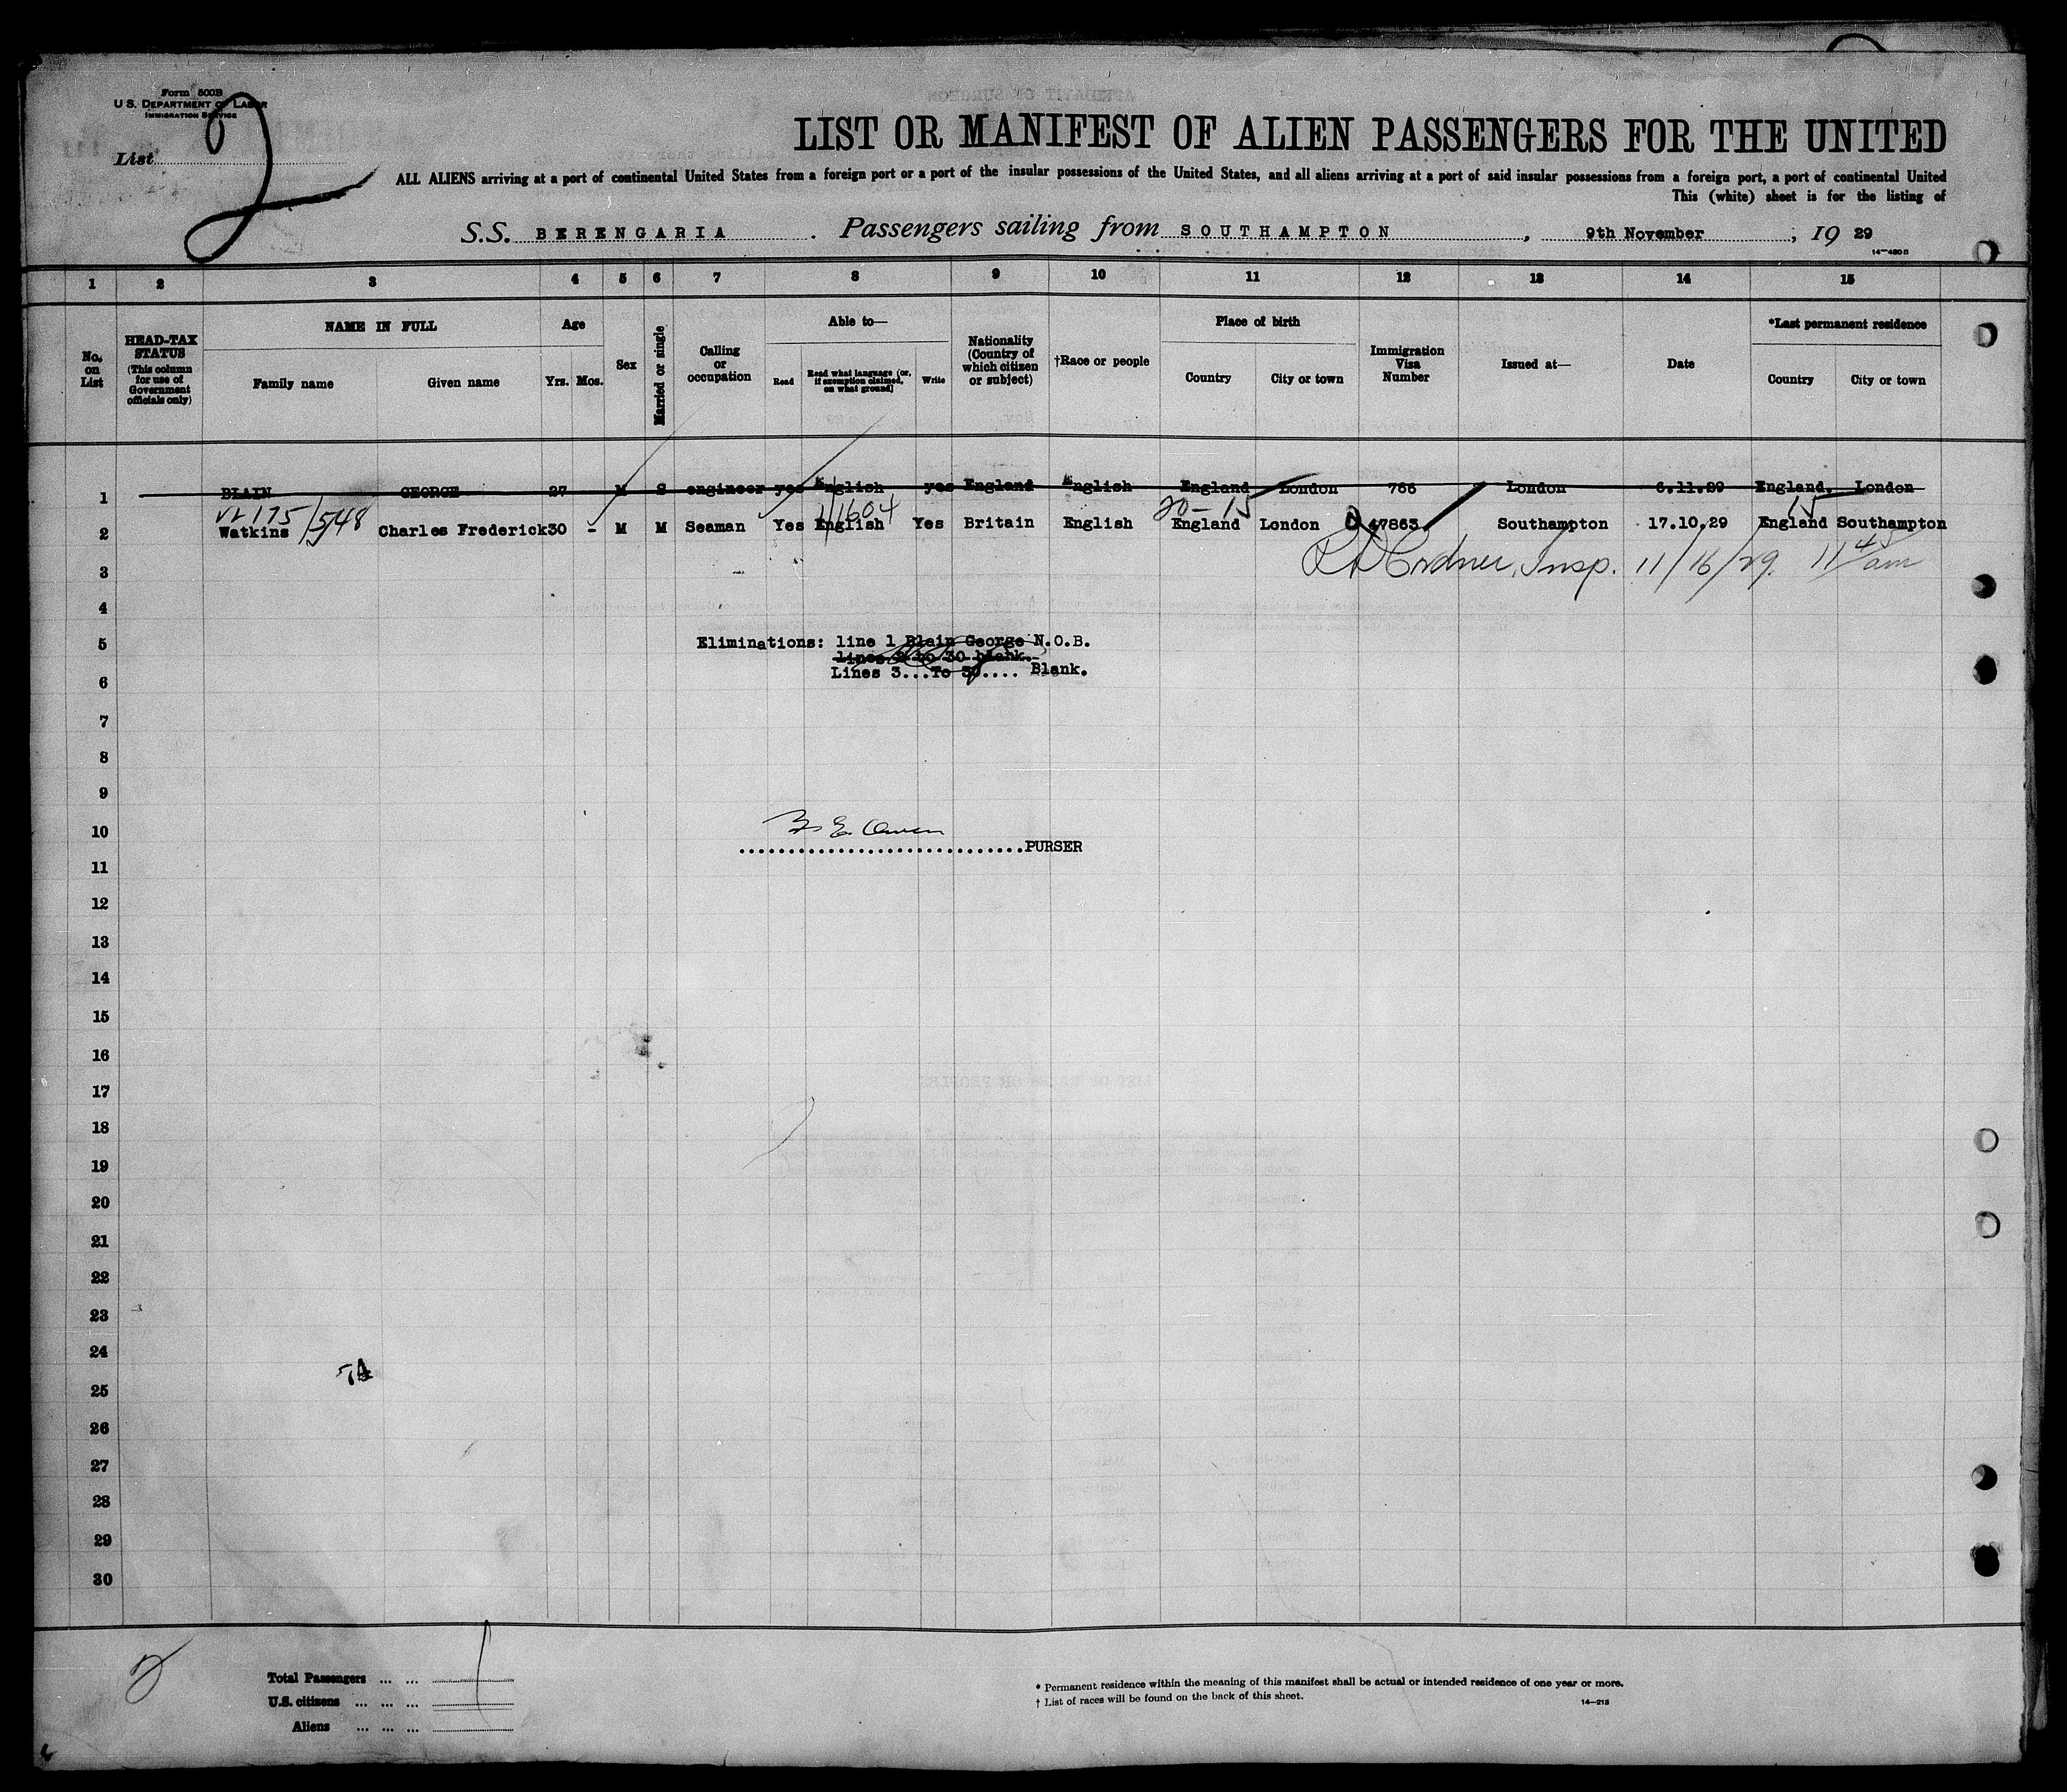 Form 500B
U.S. DEPARTMENT OF LABOR
IMMIGRATION SERVICE
List 2
LIST OR MANIFEST OF ALIEN PASSENGERS FOR THE UNITED
ALL ALIENS arriving at a port of continental United States from a foreign port or a port of the insular possessions of the United States, and all aliens arriving at a port of said insular possessions from a foreign port, a port of continental United
This (white) sheet is for the listing of
S.S. BERENGARIA. Passengers sailing from SOUTHAMPTON, 9th November, 19 29
14—480B
1 2 3 4 5 6 7 8 9 10 11 12 13 14 15
No. on List
HEAD-TAX STATUS (This column for use of Government officials only)
NAME IN FULL
Family name Given name
Age
Yrs. Mos.
Sex
Married or single
Calling or occupation
Able to—
Read Read what language (or, if exemption claimed, on what ground) Write
Nationality (Country of which citizen or subject)
†Race or people
Place of birth
Country City or town
Immigration Visa Number
Issued at—
Date
*Last permanent residence
Country City or town
1 BLAIN GEORGE 27 M S engineer yes English yes England English England London 766 London 6.11.29 England. London
175/548 1/1604 20-15 15
2 Watkins Charles Frederick 30 - M M Seaman Yes English Yes Britain English England London 47863 Southampton 17.10.29 England Southampton
Insp. 11/16/29. 11 45 am
3
4
5 Eliminations: line 1 Blain George N.O.B.
lines 2 to 30 blank.
6 Lines 3...To 30.... Blank.
7
8
9
10 Owen
..............................PURSER
11
12
13
14
15
16
17
18
19
20
21
22
23
24
74
25
26
27
28
29
30
2
Total Passengers ... ... 1
U.S. citizens ... ... ...
Aliens ... ... ...
* Permanent residence within the meaning of this manifest shall be actual or intended residence of one year or more.
† List of races will be found on the back of this sheet.
14—213